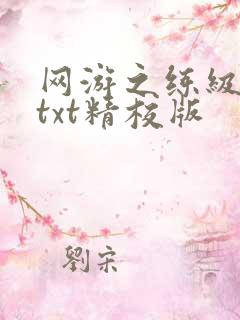 网游之练级
txt精校版
劉宋